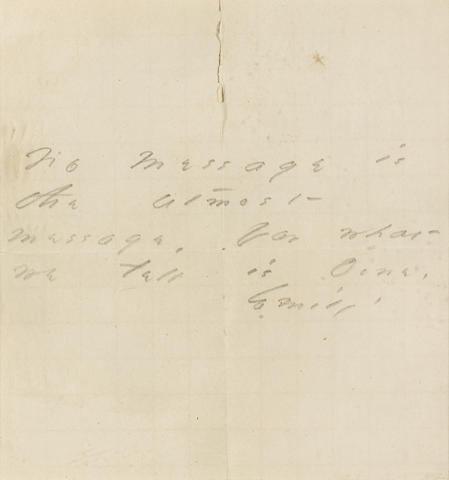 No message is
the utmost
message, for what
we tell is done.
Emily.